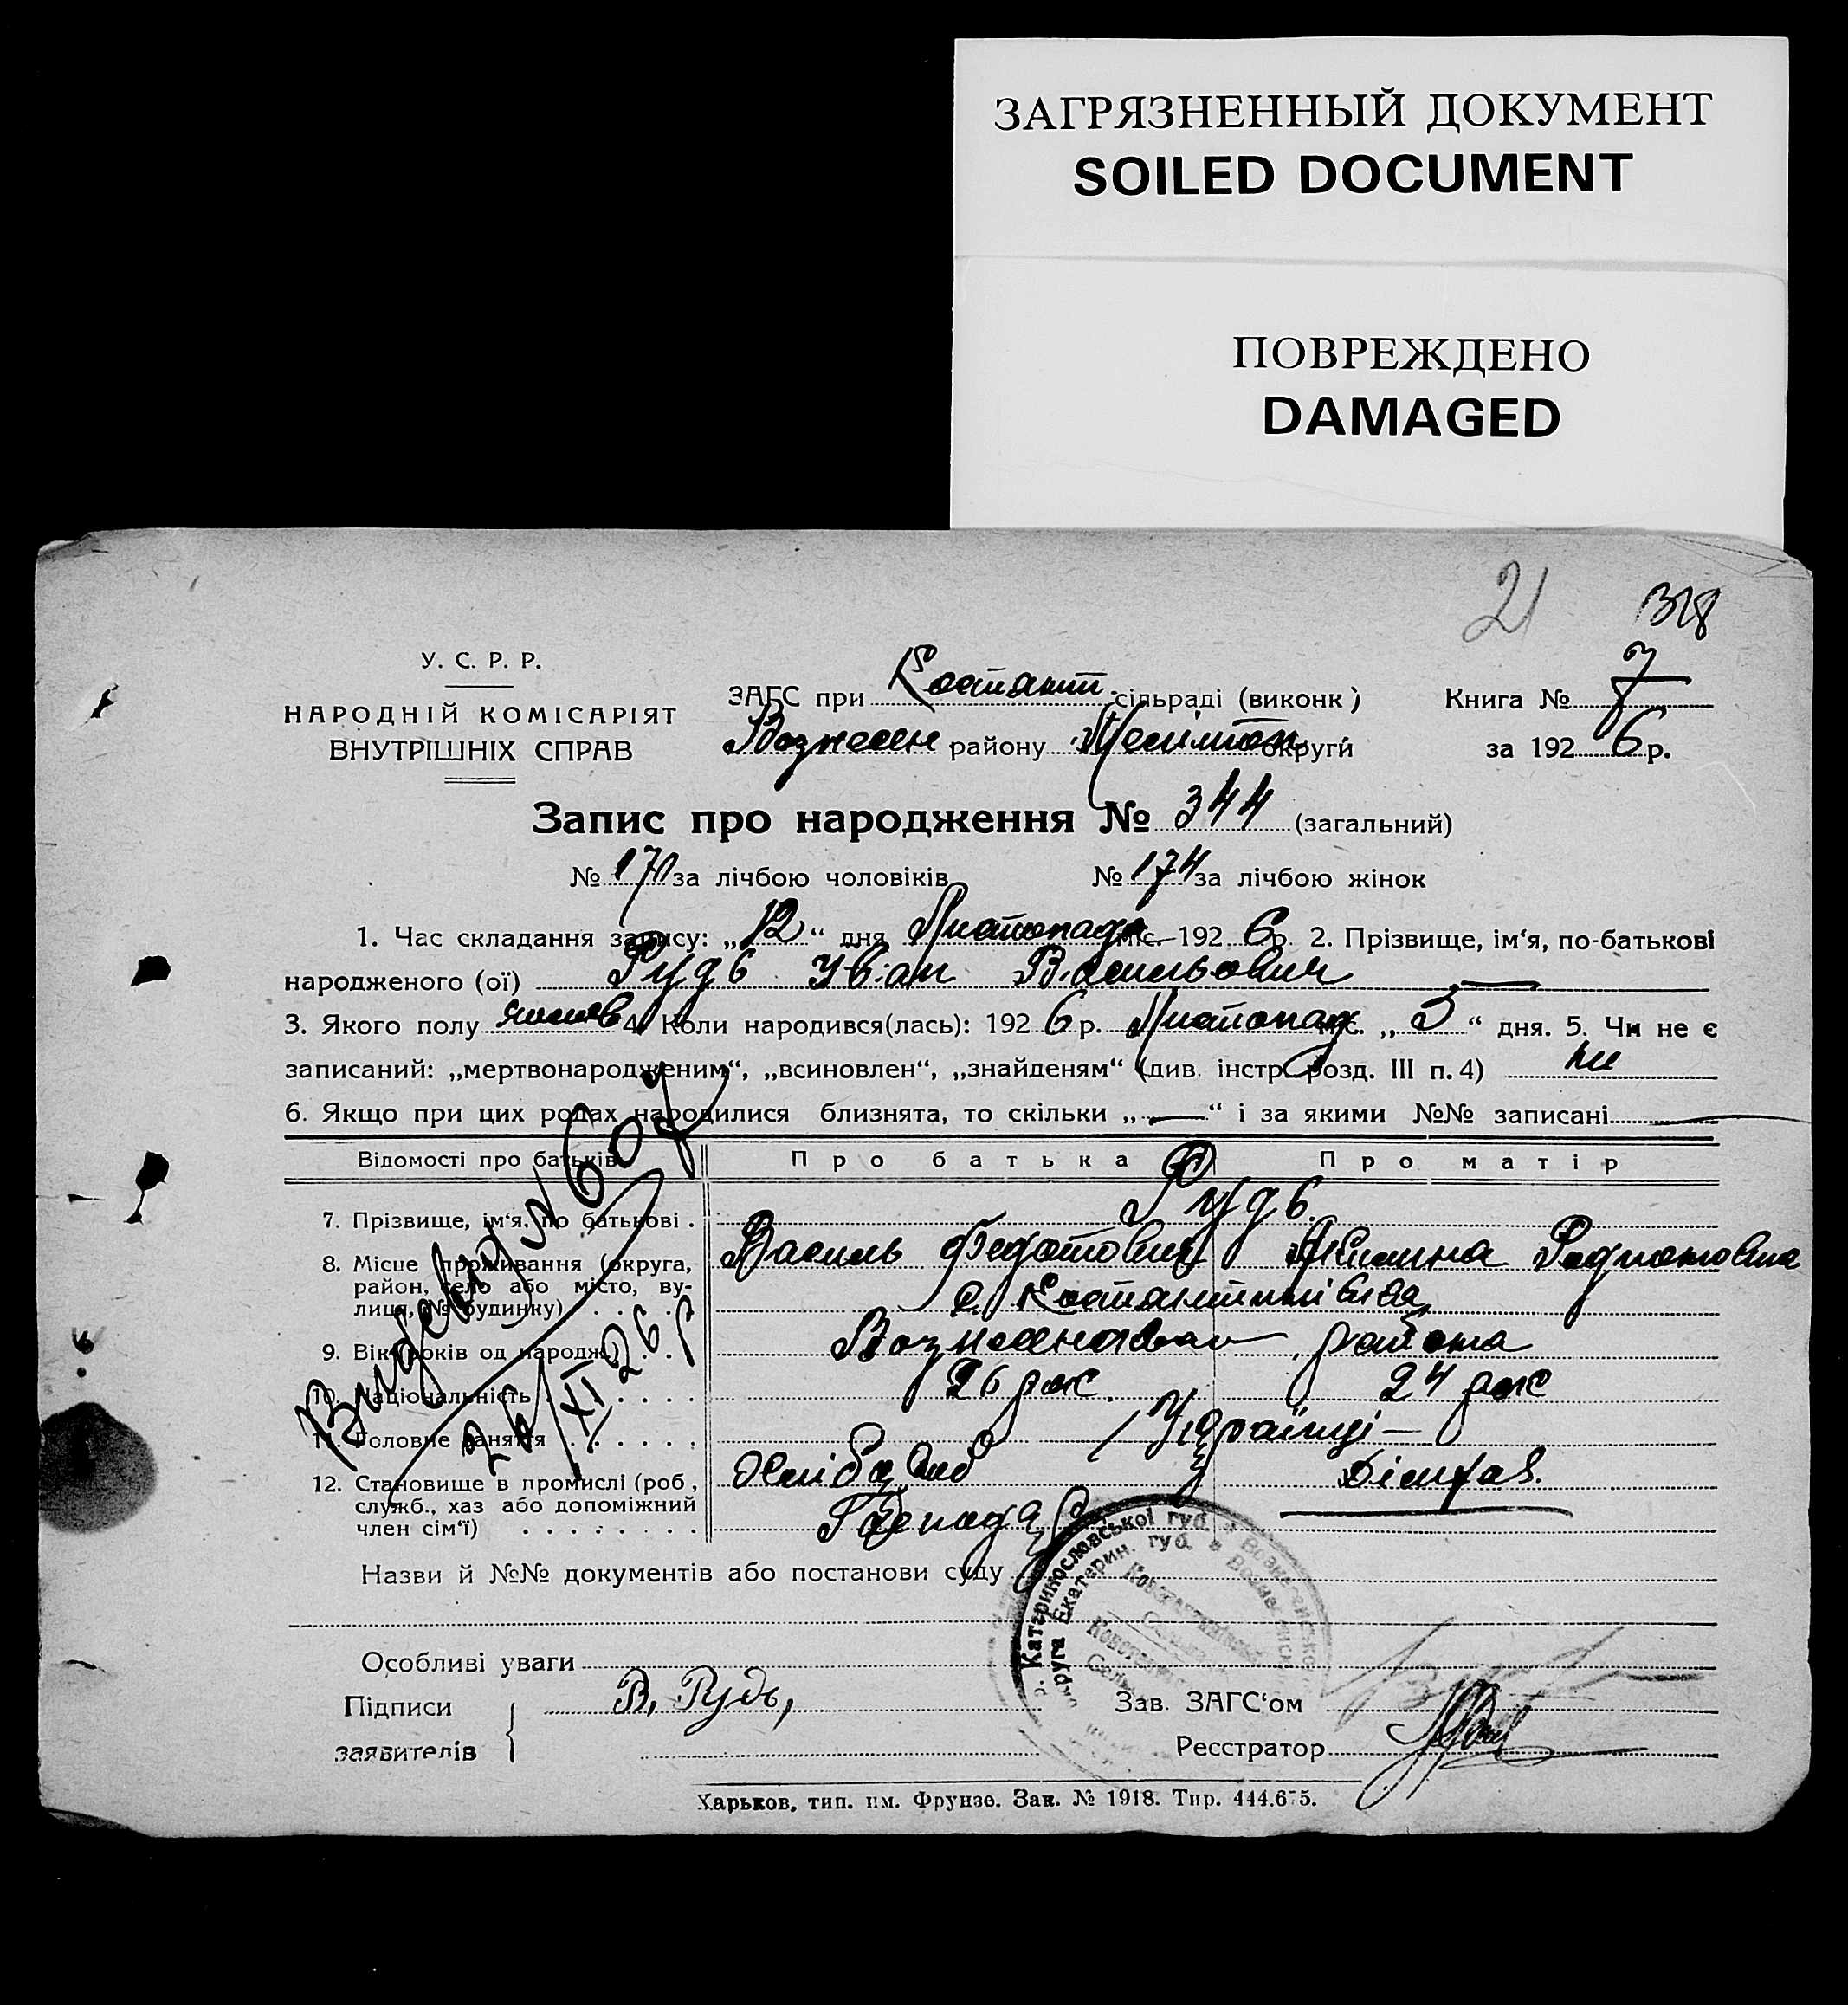 ЗАГРЯЗНЕННЫЙ ДОКУМЕНТ
SOILED DOCUMENT
ПОВРЕЖДЕНО
DAMAGED
21 318
У. С. Р. Р.
НАРОДНІЙ КОМІСАРІЯТ
ВНУТРІШНІХ СПРАВ
ЗАГС при Костант. сільраді (виконк) Книга № 7
Вознесен району Мелітоп. округи за 1926 р.
Запис про народження № 344 (загальний)
№ 170 за лічбою чоловіків № 174 за лічбою жінок
1. Час складання запису: „12“ дня Листопада міс. 1926 р. 2. Прізвище, ім‘я, по-батькові
народженого (ої) Рудь Іван Васильович
3. Якого полу 4. Коли народився(лась): 1926 р. Листопад. міс. „5“ дня. 5. Чи не є
записаний: „мертвонародженим“, „всиновлен“, „знайденям“ (див. інстр. розд. III п. 4) ні
6. Якщо при цих родах народилися близнята, то скільки „—“ і за якими №№ записані
Відомості про батьків Про батька Про матір
7. Прізвище, ім‘я, по батькові . Рудь
Василь Федотович
8. Місце проживання (округа,
район, село або місто, ву-
лиця, № будинку) с. Костантинівка
9. Вік (років од народж.) района
10. Національність 26 рок. 24 рок
11. Головне заняття Українці
12. Становище в промислі (роб.,
служб., хаз або допоміжний
член сім‘ї)
24/XI 26 р
Назви й №№ документів або постанови суду
Катеринославської губ.
Екатерин. губ.
Особливі уваги
Підписи
заявителів
В. Рудь,
Зав. ЗАГС‘ом
Ресстратор
Харьков, тип. им. Фрунзе. Зак. № 1918. Тир. 444.675.